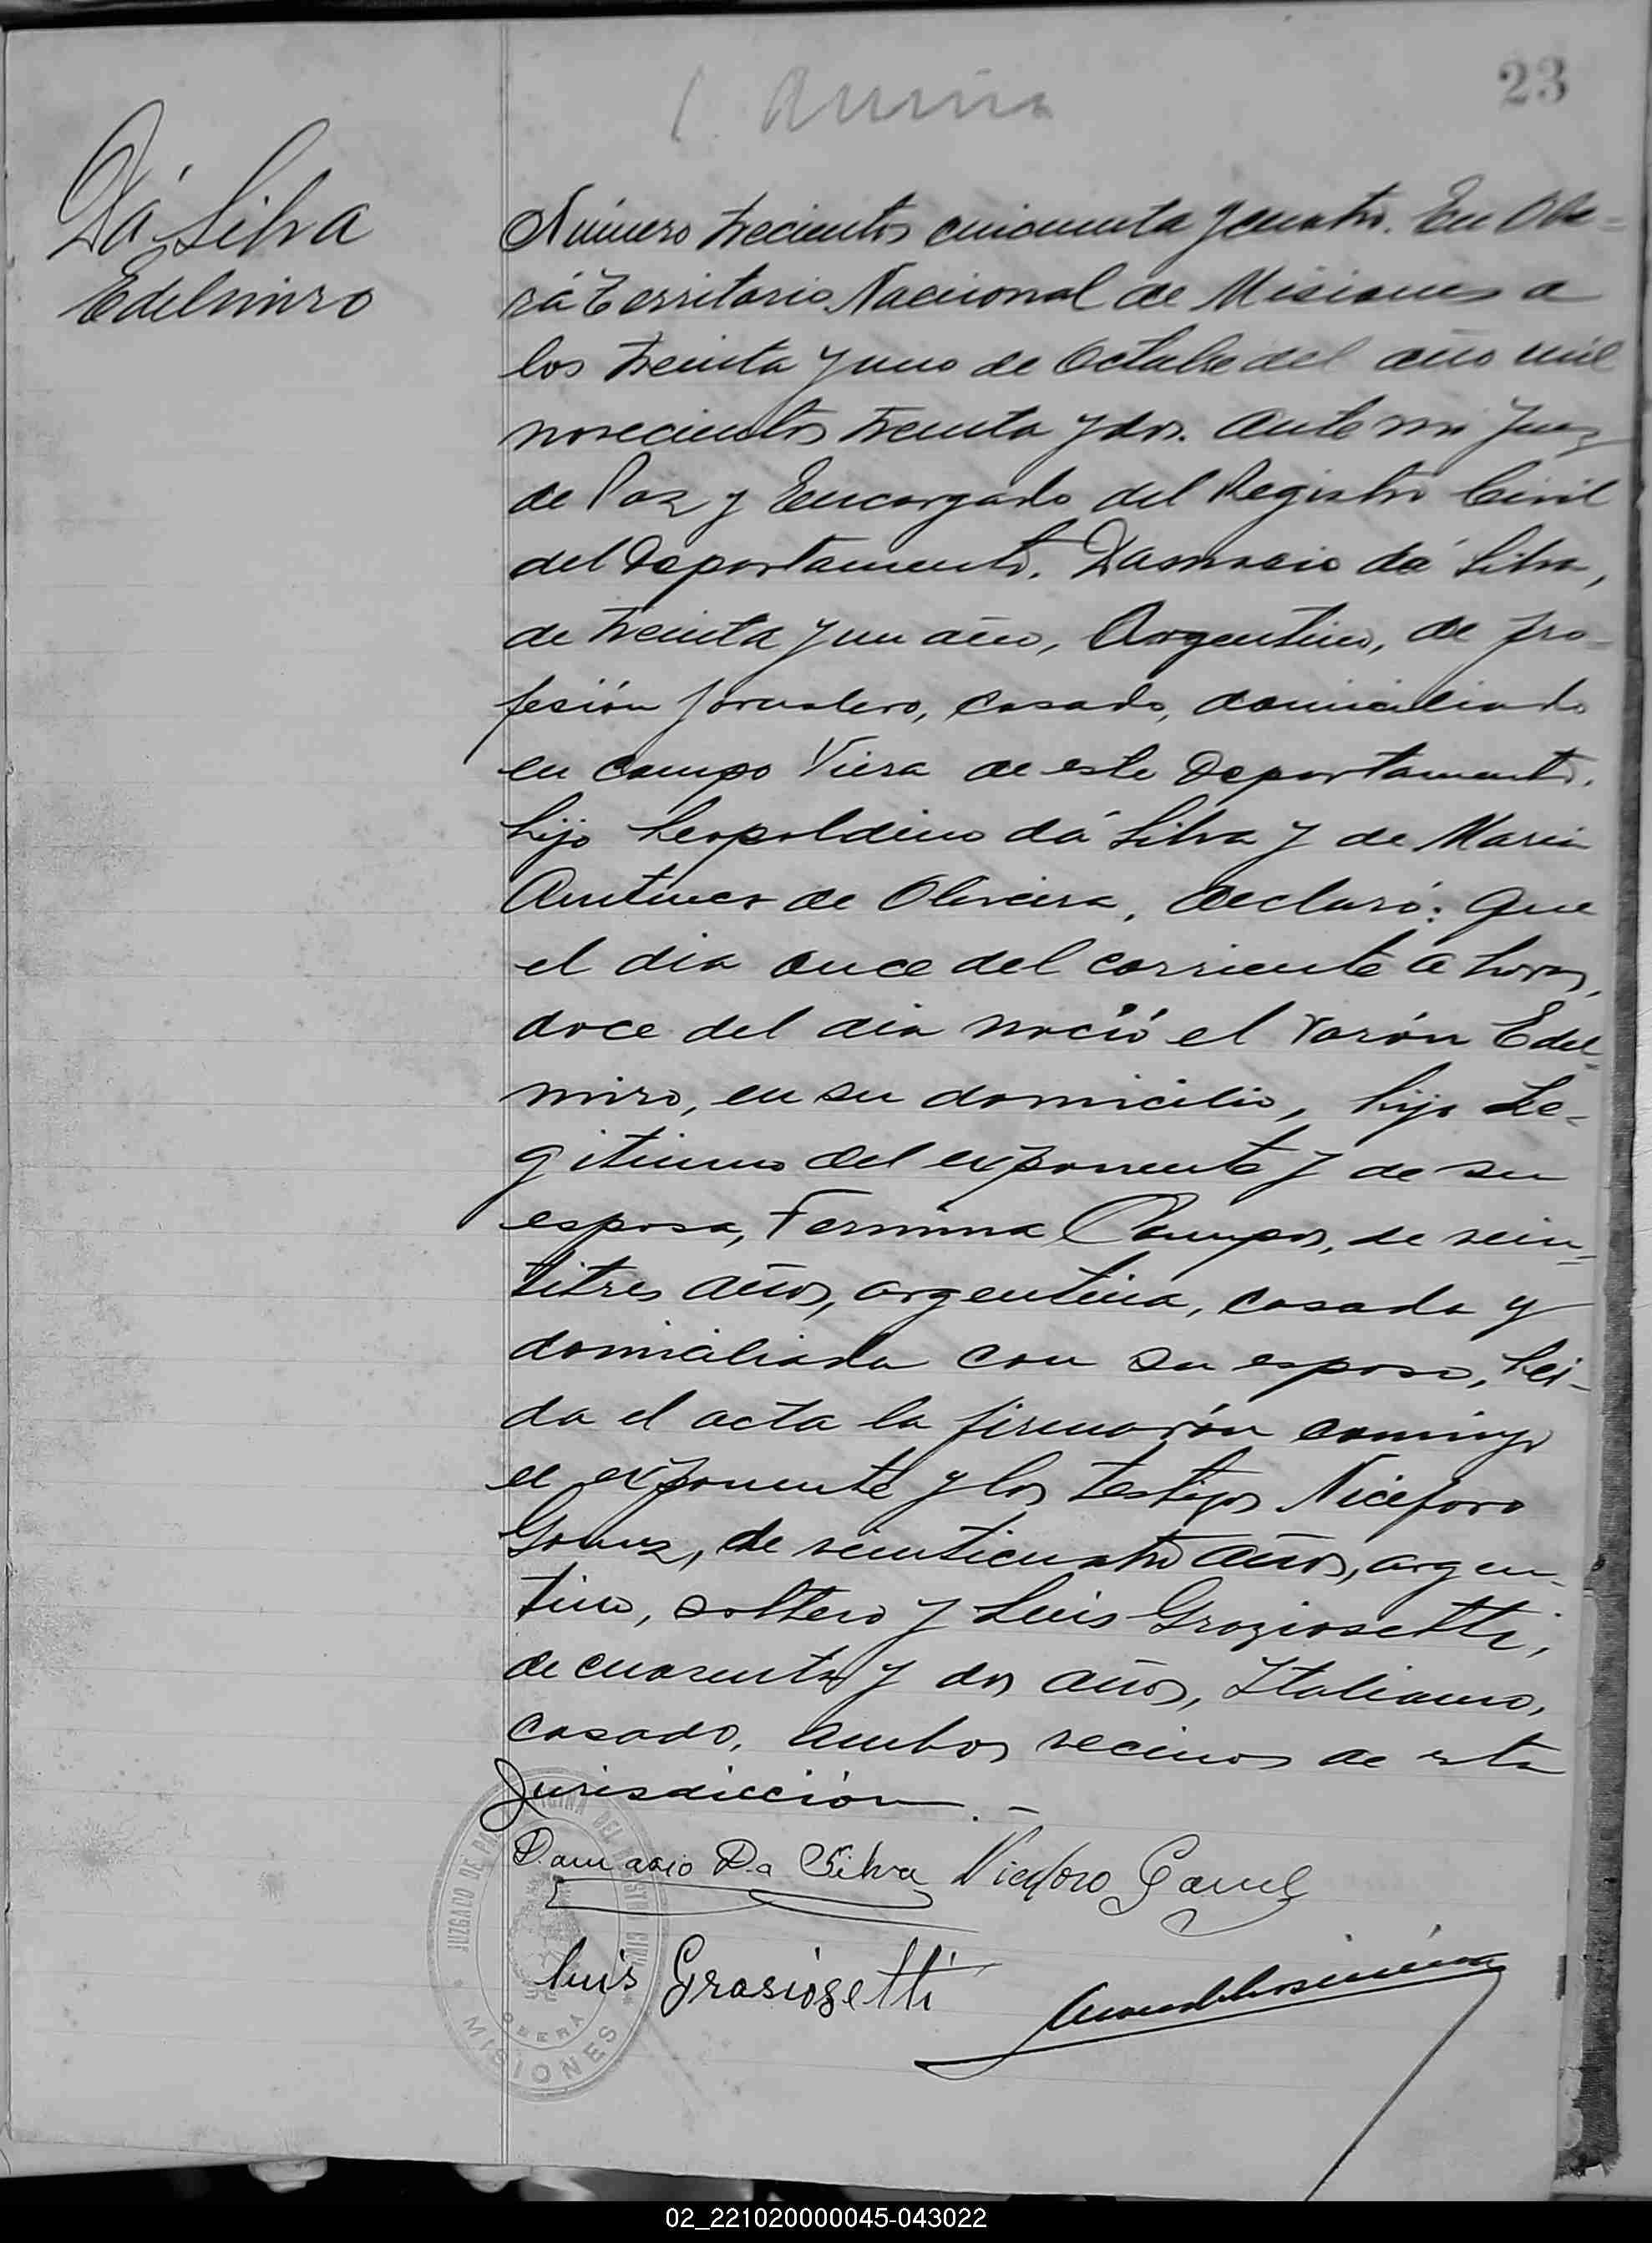 23
Dá Silva
Edelmiro
Número trecientos cincuenta y cuatro. En Obe-
rá Territorio Nacional de Misiones a
los treinta y uno de Octubre del año mil
novecientos treinta y dos. Ante mi Juez
de Paz y Encargado del Registro Civil
del Departamento. Damacio dá Silva,
de treinta y un año, Argentino, de pro-
fesión jornalero, casado, domiciliado
en campo Viera de este Departamento.
hijo Leopoldino dá Silva y de Maria
Antunes de Oliveira, declaró: Que
el dia once del corriente a horas,
doce del dia nació el varón Edel-
miro, en su domicilio, hijo Le-
gitimo del exponente y de su
esposa, Fermina Campos, de vein-
titres años, argentina, casada y
domiciliada con su esposo, Lei-
da el acta la firmarón conmigo
el exponente y los testigos Niceforo
Gomez, de veinticuatro años, argen-
tino, soltero y Luis Groziosetti,
de cuarenta y dos años, Italiano,
casado, ambos vecinos de esta
Jurisdicción.-
Damacio Da Silva Niceforo Gomez
Luis Grasiosetti
JUZGADO DE PAZ OFICINA DEL REGISTRO CIVIL
OBERÁ
MISIONES
02_221020000045-043022